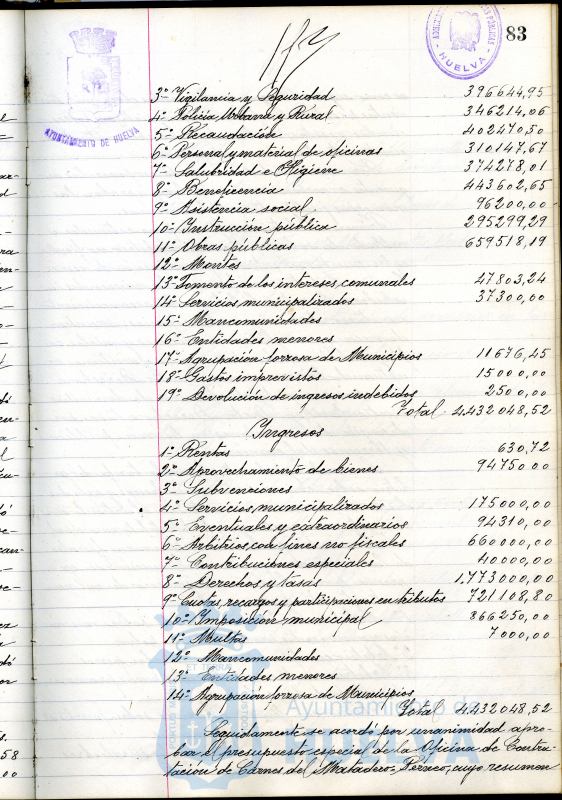 83
AYUNTAMIENTO DE HUELVA
HUELVA
3º Vigilancia y Seguridad 396644,95
4º Policía Urbana y Rural 346214,06
5º Recaudación 402470,50
6º Personal y material de oficinas 310147,67
7º Salubridad e Higiene 374278,01
8º Beneficencia 443602,65
9º Asistencia social 96200,00
10º Instrucción pública 295299,29
11º Obras públicas 659518,19
12º Montes
13º Fomento de los intereses comunales 47803,24
14º Servicios municipalizados 37300,00
15º Mancomunidades
16º Entidades menores
17º Agrupación forzosa de Municipios 11676,45
18º Gastos imprevistos 15000,00
19º Devolución de ingresos indebidos 2500,00
Total 4.432048,52
Ingresos
1º Rentas 630,72
2º Aprovechamiento de bienes 94750,00
3º Subvenciones
4º Servicios municipalizados 175000,00
5º Eventuales y extraordinarios 94310,00
6º Arbitrios con fines no fiscales 660000,00
7º Contribuciones especiales 40000,00
8º Derechos y tasas 1.773000,00
9º Cuotas, recargos y participaciones en tributos 721108,80
10º Imposición municipal 866250,00
11º Multas 7000,00
12º Mancomunidades
13º Entidades menores
14º Agrupación forzosa de Municipios
Total 4.432048,52
Ayuntamiento de
Seguidamente se acordó por unanimidad apro-
bar el presupuesto especial de la Oficina de Contra-
tación de Carnes del Matadero-Perneo, cuyo resumen